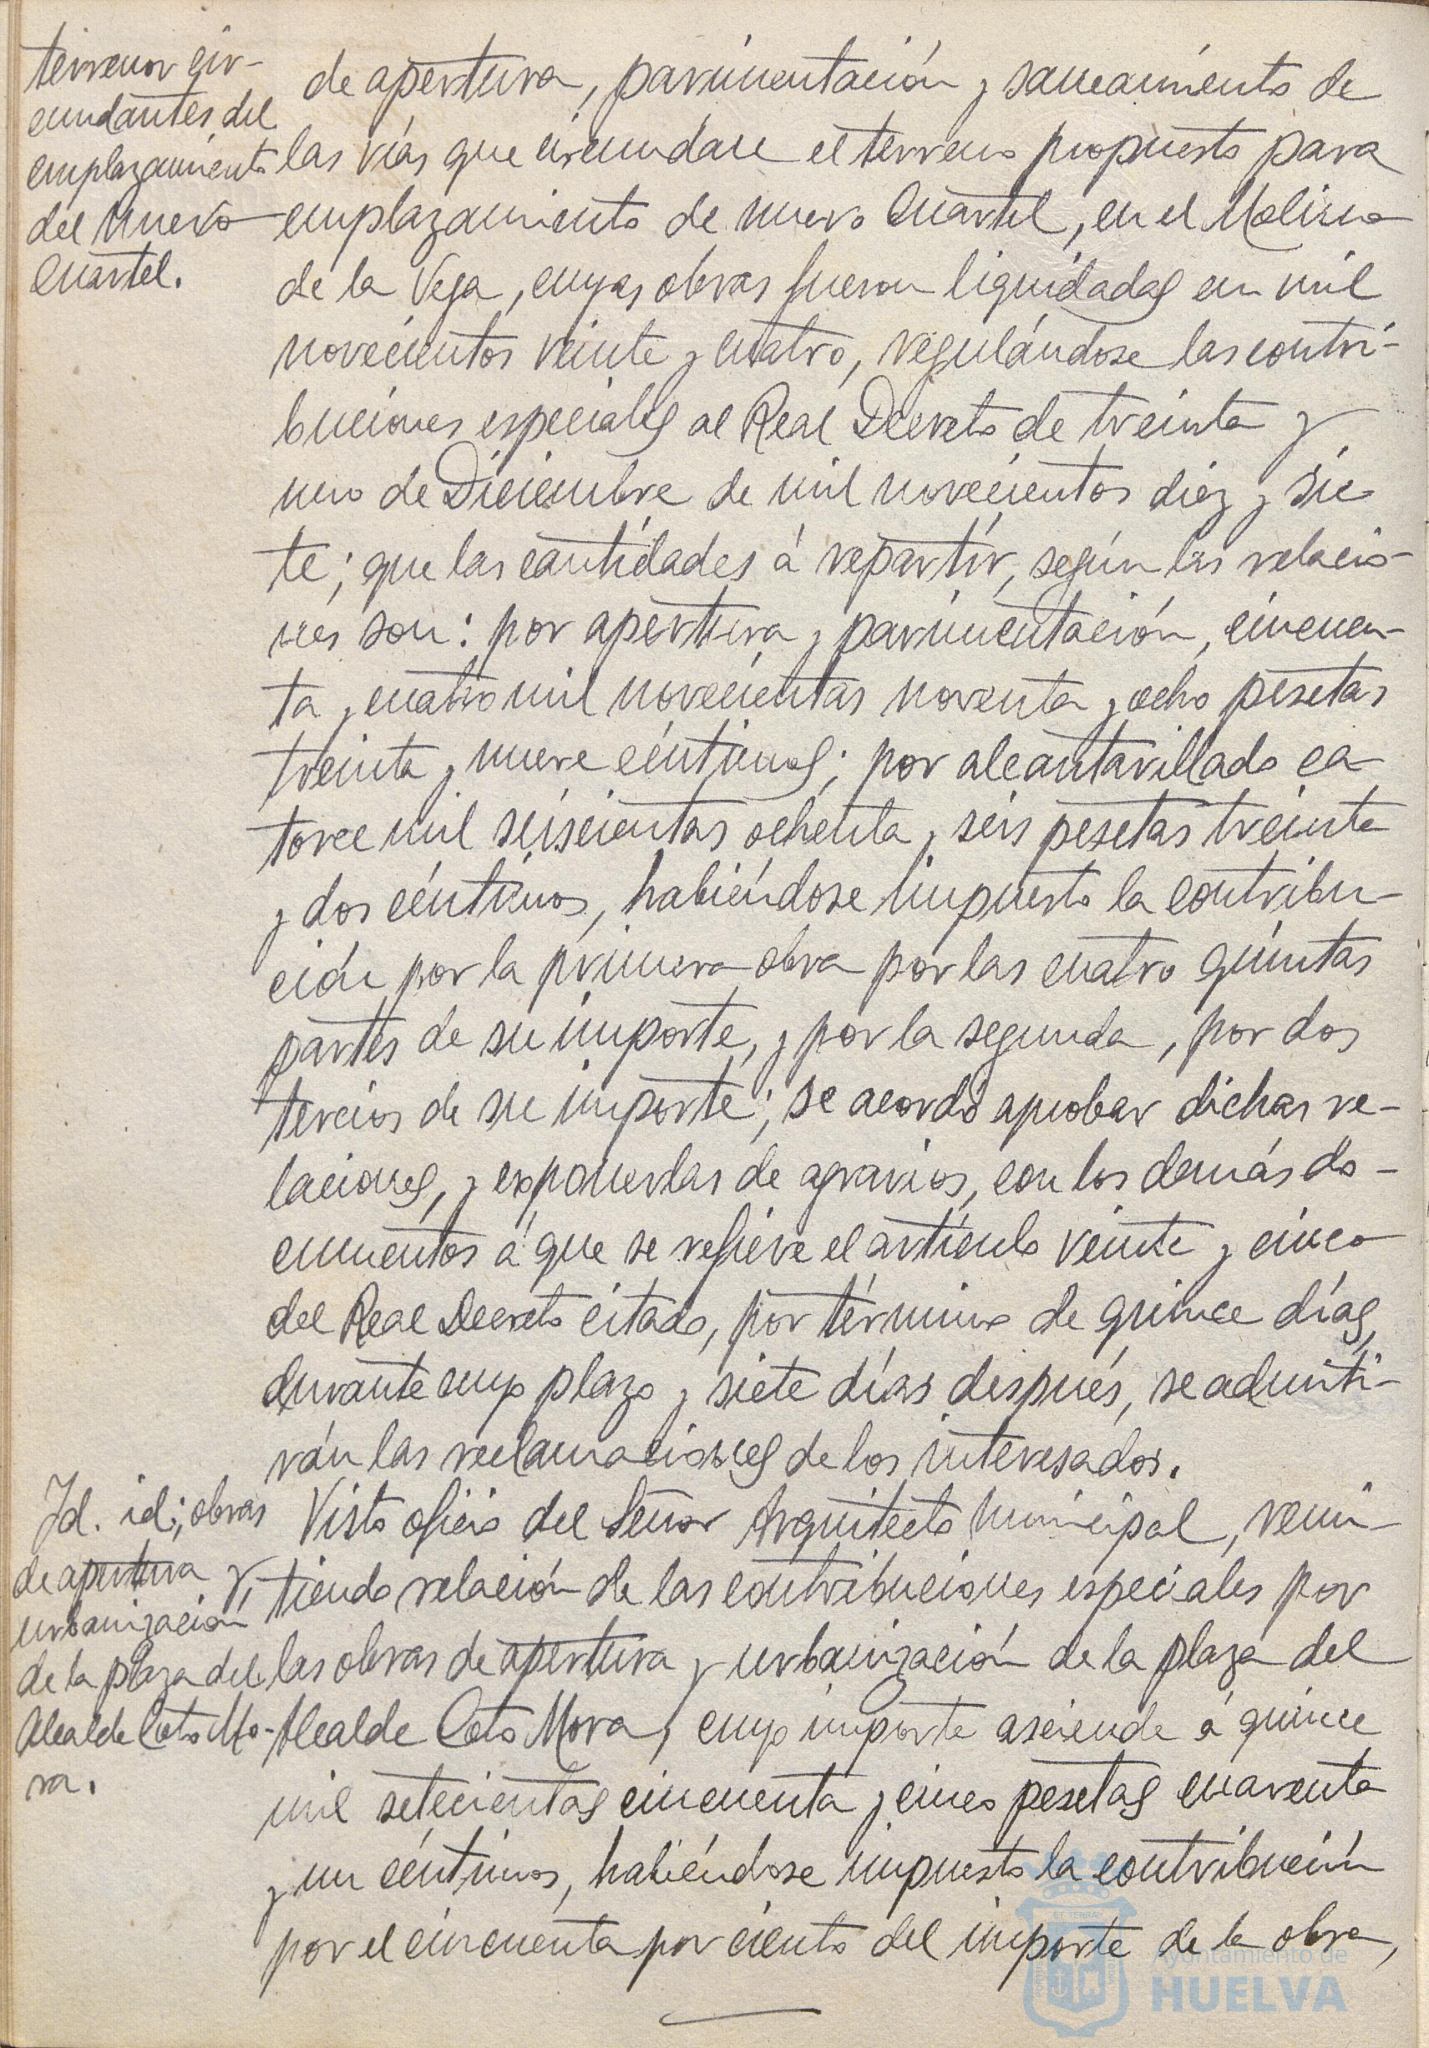 terrenos cir-
cundantes del
emplazamiento
del nuevo
cuartel.
de apertura, pavimentación y saneamiento de
las vías que circundan el terreno propuesto para
emplazamiento de nuevo Cuartel, en el Molino
de la Vega, cuyas obras fueron liquidadas en mil
novecientos veinte y cuatro, regulándose las contri-
buciones especiales al Real Decreto de treinta y
uno de Diciembre de mil novecientos diez y sie
te; que las cantidades á repartir, según las relacio-
nes son: por apertura y pavimentación, cincuen-
ta y cuatro mil novecientas noventa y ocho pesetas
treinta y nueve céntimos; por alcantarillado ca-
torce mil seiscientas ochenta y seis pesetas treinta
y dos céntimos, habiéndose impuesto la contribu-
ción por la primera obra por las cuatro quintas
partes de su importe, y por la segunda, por dos
tercios de su importe; se acordó aprobar dichas re-
laciones, y exponerlas de agravios, con los demás do-
cumentos á que se refiere el artículo veinte y cinco
del Real Decreto citado, por término de quince días,
durante cuyo plazo y siete días después, se admiti-
rán las reclamaciones de los interesados.
Id. id; obras
de apertura y
urbanización
de la plaza del
Alcalde Coto Mo-
ra.
Visto oficio del Señor Arquitecto Municipal, remi-
tiendo relación de las contribuciones especiales por
las obras de apertura y urbanización de la plaza del
Alcalde Coto Mora, cuyo importe asciende á quince
mil setecientas cincuenta y cinco pesetas cuarenta
y un céntimos, habiéndose impuesto la contribución
por el cincuenta por ciento del importe de la obra,
Ayuntamiento de
HUELVA